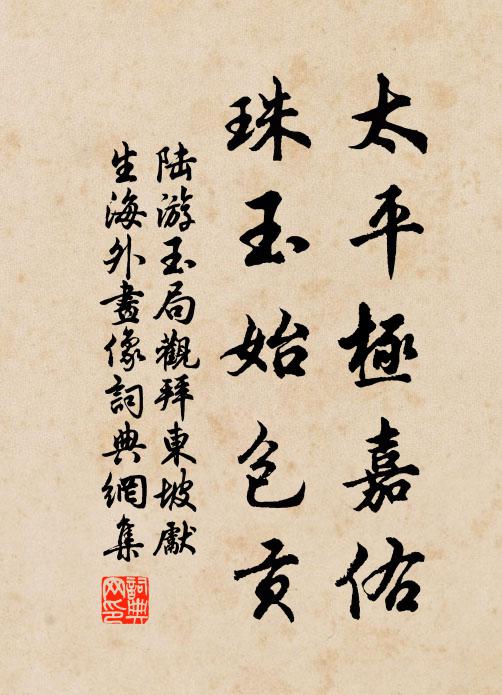 太平極嘉佑
珠玉始包貢
陆游玉局觀拜東坡獻
生海外畫像詞典網集
詞典网印